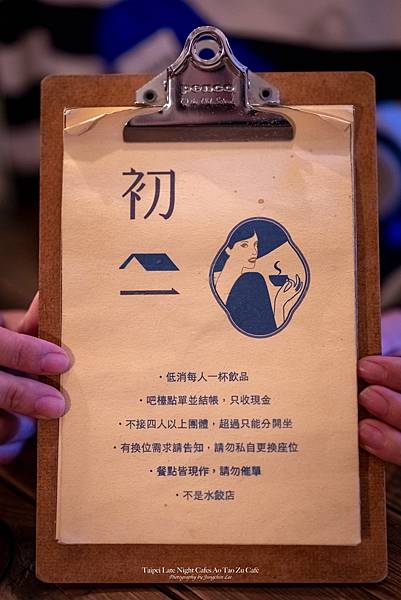 penco
初
・低消每人一杯飲品
・吧檯點單並結帳，只收現金
・不接四人以上團體，超過只能分開坐
・有換位需求請告知，請勿私自更換座位
・餐點皆現作，請勿催單
・不是水餃店
Taipei Late Night Cafes Ao Tao Zu Cafe
Photography by Jungchin Lee